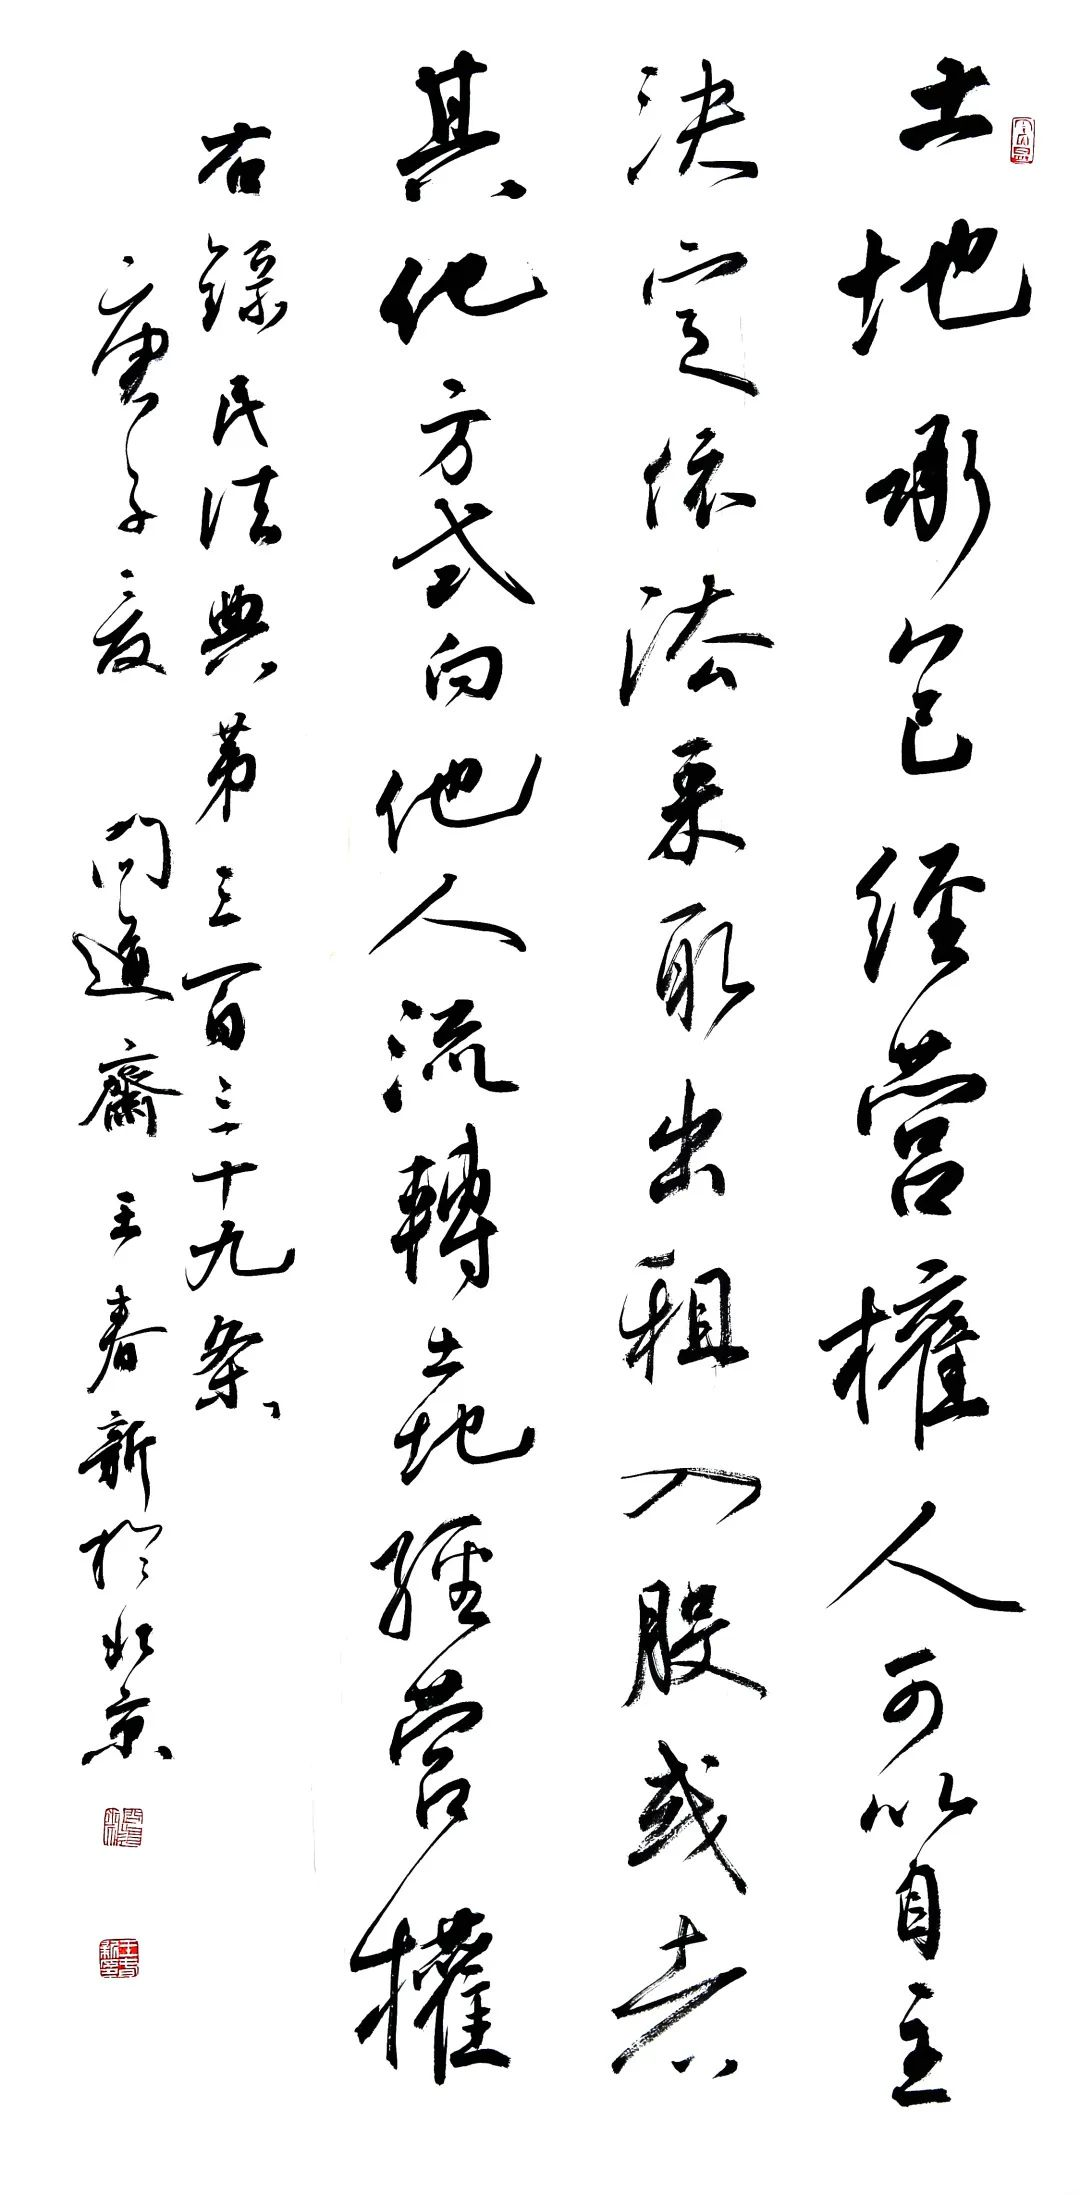 土地承包经营權人可以自主
決定依法采取出租入股或者
其他方式向他人流轉土地經营權
右録民法典第三百三十九条、
庚子夏 问道齋 王春新於北京